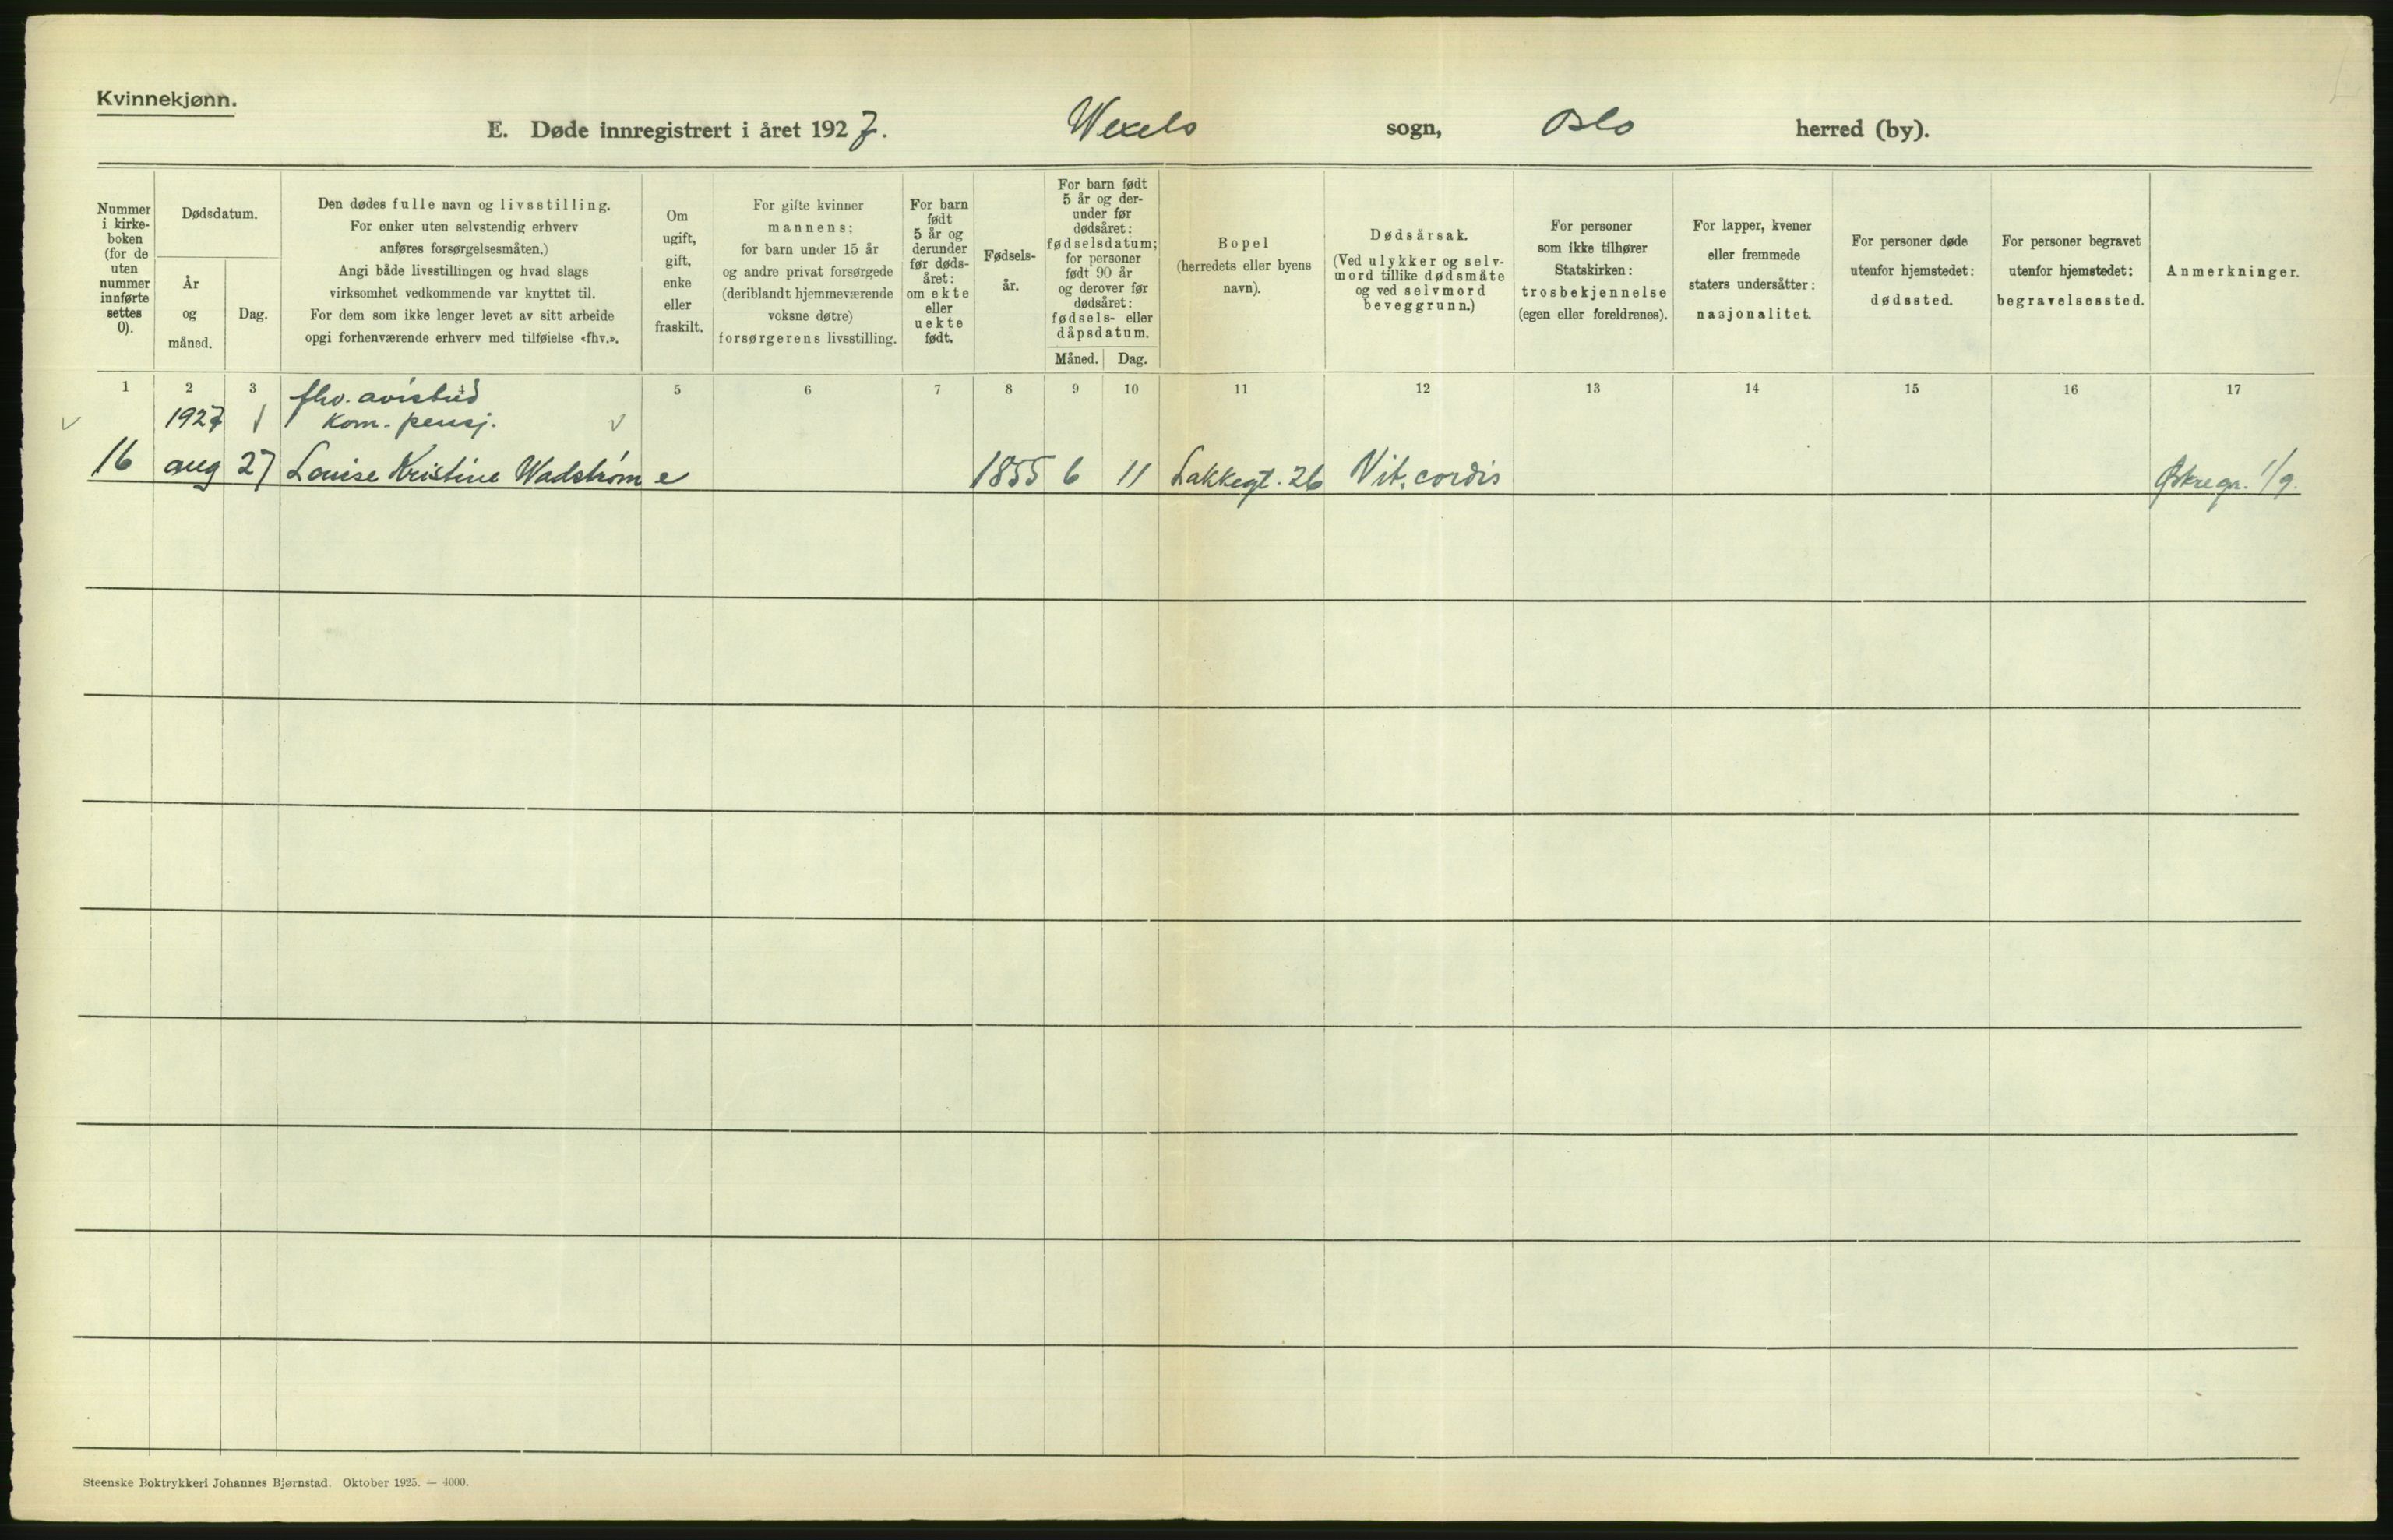 Kvinnekjønn.
E. Døde innregistrert i året 1927. Wexels sogn, Oslo herred (by).
Nummer i kirke- boken (for de uten nummer innførte settes 0).
Dødsdatum.
År og måned.
Dag.
Den dødes fulle navn og livsstilling.
For enker uten selvstendig erhverv
anføres forsørgelsesmåten.)
Angi både livsstillingen og hvad slags
virksomhet vedkommende var knyttet til.
For dem som ikke lenger levet av sitt arbeide
opgi forhenværende erhverv med tilføielse «fhv.».
Om
ugift,
gift,
enke
eller
fraskilt.
For gifte kvinner
mannens;
for barn under 15 år
og andre privat forsørgede
(deriblandt hjemmeværende
voksne døtre)
forsørgerens livsstilling.
For barn
født
5 år og
derunder
før døds-
året:
om ekte
eller
uekte
født.
Fødsels-
år.
For barn født
5 år og der-
under før
dødsåret:
fødselsdatum;
for personer
født 90 år
og derover før
dødsåret:
fødsels- eller
dåpsdatum.
Måned. Dag.
Bopel
(herredets eller byens
navn).
Dødsårsak.
(Ved ulykker og selv-
mord tillike dødsmåte
og ved selvmord
beveggrunn.)
For personer
som ikke tilhører
Statskirken:
trosbekjennelse
(egen eller foreldrenes).
For lapper, kvener
eller fremmede
staters undersåtter:
nasjonalitet.
For personer døde
utenfor hjemstedet:
dødssted.
For personer begravet
utenfor hjemstedet:
begravelsessted.
Anmerkninger.
1 2 3 4 5 6 7 8 9 10 11 12 13 14 15 16 17
fhv. avisbud
1927 kom. pensj.
16 aug 27 Louise Kristine Wadstrøm e 1855 6 11 Lakkegt. 26 Vit. cordis Østre gr. 1/9.
Steenske Boktrykkeri Johannes Bjørnstad. Oktober 1925. — 4000.